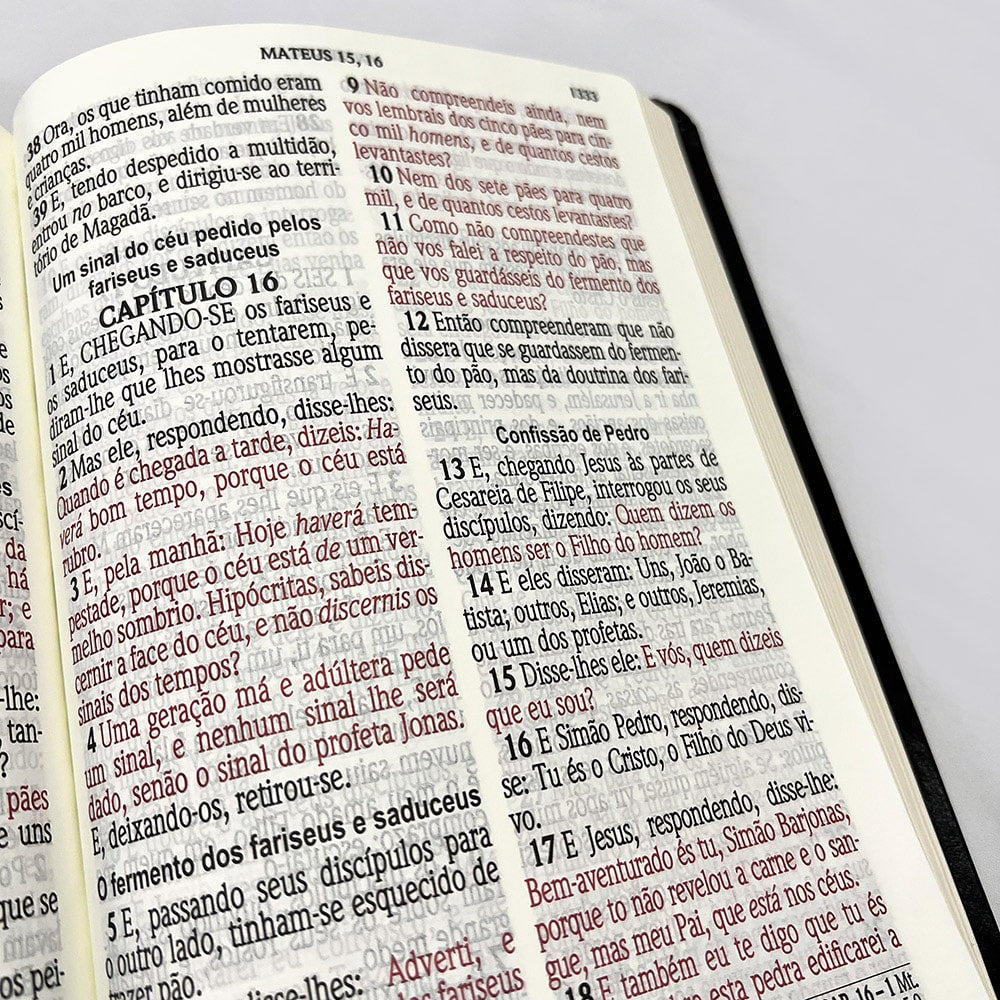 MATEUS 15, 16
1333
38 Ora, os que tinham comido eram
quatro mil homens, além de mulheres
e crianças.
39 E, tendo despedido a multidão,
entrou no barco, e dirigiu-se ao terri-
tório de Magadã.
Um sinal do céu pedido pelos
fariseus e saduceus
CAPÍTULO 16
1 E, CHEGANDO-SE os fariseus e
os saduceus, para o tentarem, pe-
diram-lhe que lhes mostrasse algum
sinal do céu.
2 Mas ele, respondendo, disse-lhes:
Quando é chegada a tarde, dizeis: Ha-
verá bom tempo, porque o céu está
rubro.
3 E, pela manhã: Hoje haverá tem-
pestade, porque o céu está de um ver-
melho sombrio. Hipócritas, sabeis dis-
cernir a face do céu, e não discernis os
sinais dos tempos?
4 Uma geração má e adúltera pede
um sinal, e nenhum sinal lhe será
dado, senão o sinal do profeta Jonas.
E, deixando-os, retirou-se.
O fermento dos fariseus e saduceus
5 E, passando seus discípulos para
o outro lado, tinham-se esquecido de
trazer pão.
disse-lhes: Adverti, e
dos fariseus
9 Não compreendeis ainda, nem
vos lembrais dos cinco pães para cin-
co mil homens, e de quantos cestos
levantastes?
10 Nem dos sete pães para quatro
mil, e de quantos cestos levantastes?
11 Como não compreendestes que
não vos falei a respeito do pão, mas
que vos guardásseis do fermento dos
fariseus e saduceus?
12 Então compreenderam que não
dissera que se guardassem do fermen-
to do pão, mas da doutrina dos fari-
seus.
Confissão de Pedro
13 E, chegando Jesus às partes de
Cesareia de Filipe, interrogou os seus
discípulos, dizendo: Quem dizem os
homens ser o Filho do homem?
14 E eles disseram: Uns, João o Ba-
tista; outros, Elias; e outros, Jeremias,
ou um dos profetas.
15 Disse-lhes ele: E vós, quem dizeis
que eu sou?
16 E Simão Pedro, respondendo, dis-
se: Tu és o Cristo, o Filho do Deus vi-
vo.
17 E Jesus, respondendo, disse-lhe:
Bem-aventurado és tu, Simão Barjonas,
porque to não revelou a carne e o san-
gue, mas meu Pai, que está nos céus.
18 E também eu te digo que tu és
sobre esta pedra edificarei a
16 - 1 Mt.